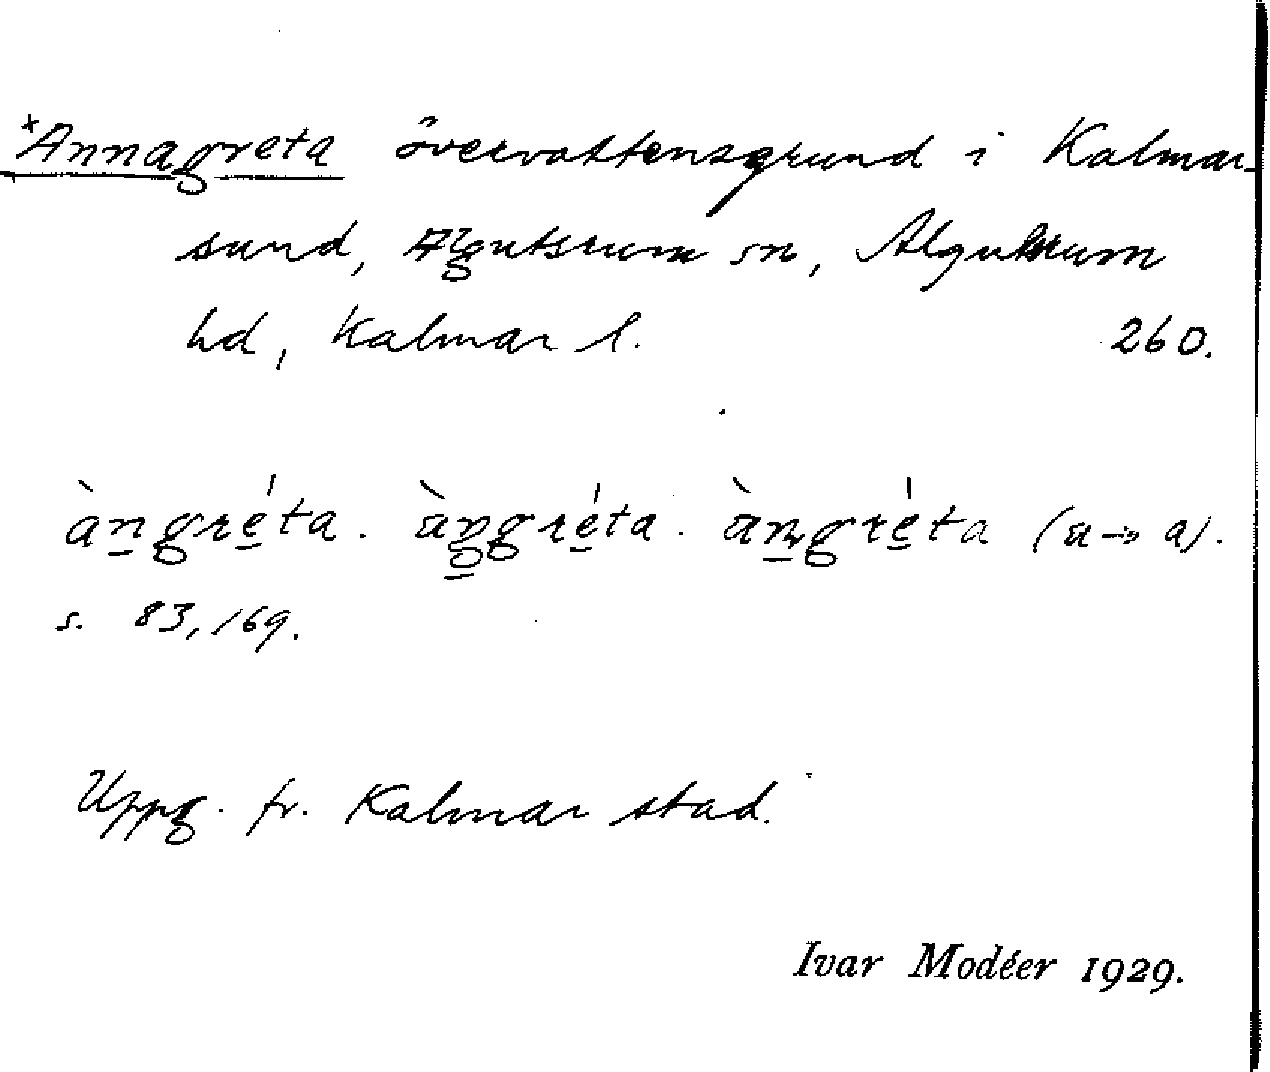 *Annagreta övervattensgrund i Kalmar-
sund, Algutsrum sn, Algutsrum
hd, Kalmar l. 260.
àngréta. àŋgréta. àngréta (a → a).
s. 83, 169.
Uppg. fr. Kalmar stad.
Ivar Modéer 1929.